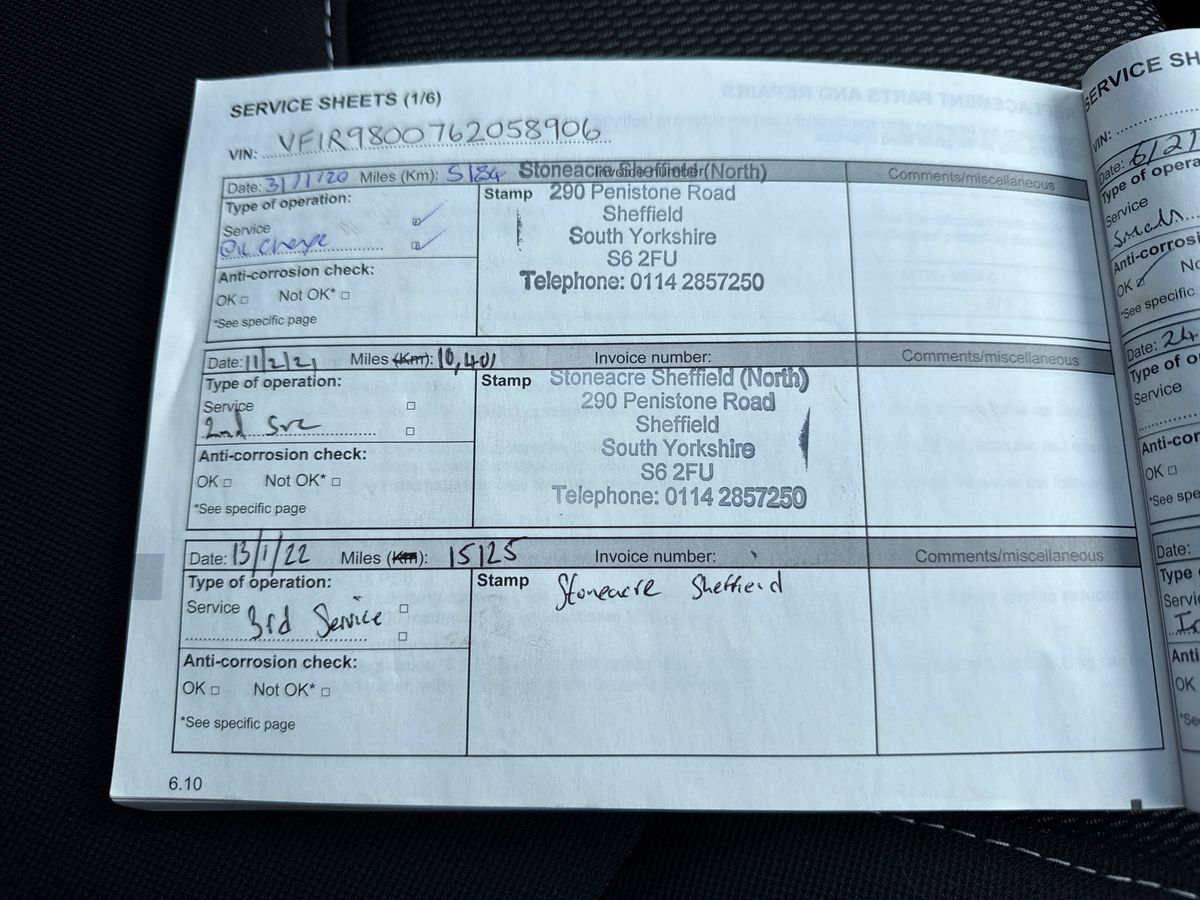 SERVICE SHEETS (1/6)
VIN: VF1R9800762058906
Date: 31/1/20 Miles (Km): 5184 Invoice number:
Comments/miscellaneous
Type of operation:
Service
Oil change
Anti-corrosion check:
OK Not OK*
*See specific page
Stamp Stoneacre Sheffield (North)
290 Penistone Road
Sheffield
South Yorkshire
S6 2FU
Telephone: 0114 2857250
Date: 11/2/21 Miles (Km): 10,401 Invoice number:
Comments/miscellaneous
Type of operation:
Service
2nd Svc
Anti-corrosion check:
OK Not OK*
*See specific page
Stamp Stoneacre Sheffield (North)
290 Penistone Road
Sheffield
South Yorkshire
S6 2FU
Telephone: 0114 2857250
Date: 13/1/22 Miles (Km): 15125 Invoice number:
Comments/miscellaneous
Type of operation:
Service 3rd Service
Anti-corrosion check:
OK Not OK*
*See specific page
Stamp Stoneacre Sheffield
6.10
SERVICE SH
VIN:
Date: 6/27
Type of opera
Service
Anti-corrosi
OK No
*See specific
Date: 24
Type of o
Service
Anti-cor
OK
*See spe
Date:
Type
Servi
Anti
OK
*Se